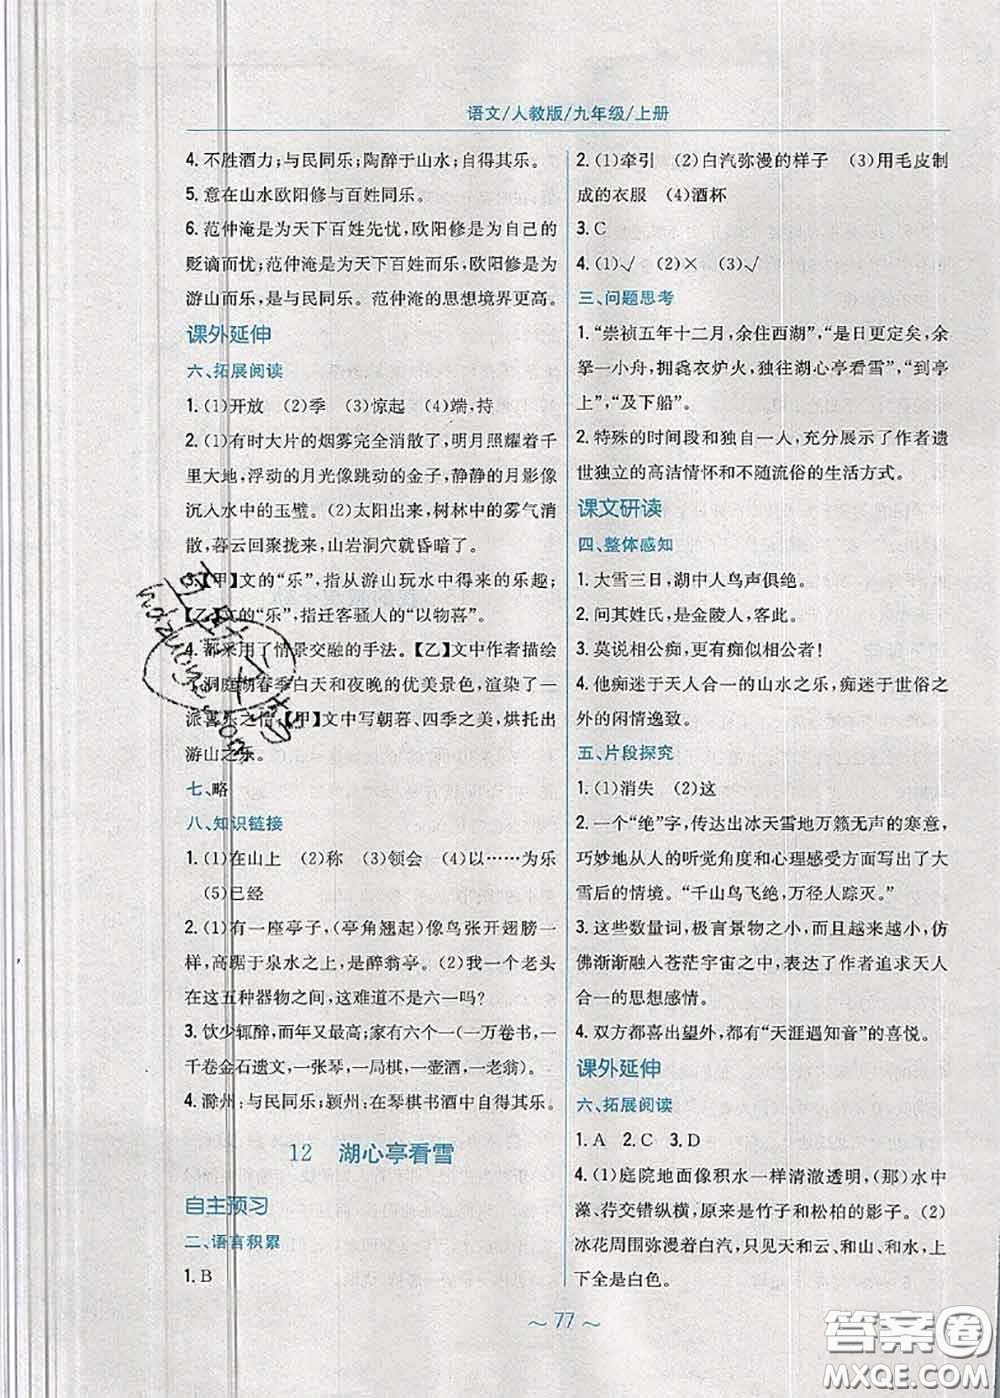 语文/人教版/九年级/上册
4. 不胜酒力;与民同乐;陶醉于山水;自得其乐。
5. 意在山水欧阳修与百姓同乐。
6. 范仲淹是为天下百姓先忧,欧阳修是为自己的
贬谪而忧;范仲淹是为天下百姓而乐,欧阳修是为
游山而乐,是与民同乐。范仲淹的思想境界更高。
课外延伸
六、拓展阅读
1. (1)开放 (2)季 (3)惊起 (4)端,持
2. (1)有时大片的烟雾完全消散了,明月照耀着千
里大地,浮动的月光像跳动的金子,静静的月影像
沉入水中的玉璧。(2)太阳出来,树林中的雾气消
散,暮云回聚拢来,山岩洞穴就昏暗了。
3.【甲】文的“乐”,指从游山玩水中得来的乐趣;
【乙】文的“乐”,指迁客骚人的“以物喜”。
4. 都采用了情景交融的手法。【乙】文中作者描绘
了洞庭湖春季白天和夜晚的优美景色,渲染了一
派喜乐之情,【甲】文中写朝暮、四季之美,烘托出
游山之乐。
七、略
八、知识链接
1. (1)在山上 (2)称 (3)领会 (4)以……为乐
(5)已经
2. (1)有一座亭子,(亭角翘起)像鸟张开翅膀一
样,高踞于泉水之上,是醉翁亭。(2)我一个老头
在这五种器物之间,这难道不是六一吗?
3. 饮少辄醉,而年又最高;家有六个一(一万卷书,一
千卷金石遗文,一张琴,一局棋,一壶酒,一老翁)。
4. 滁州:与民同乐;颍州:在琴棋书酒中自得其乐。
12 湖心亭看雪
自主预习
二、语言积累
1. B
2. (1)牵引 (2)白汽弥漫的样子 (3)用毛皮制
成的衣服 (4)酒杯
3. C
4. (1)√ (2)× (3)√
三、问题思考
1. “崇祯五年十二月,余住西湖”,“是日更定矣,余
拏一小舟,拥毳衣炉火,独往湖心亭看雪”,“到亭
上”,“及下船”。
2. 特殊的时间段和独自一人,充分展示了作者遗
世独立的高洁情怀和不随流俗的生活方式。
课文研读
四、整体感知
1. 大雪三日,湖中人鸟声俱绝。
2. 问其姓氏,是金陵人,客此。
3. 莫说相公痴,更有痴似相公者!
4. 他痴迷于天人合一的山水之乐,痴迷于世俗之
外的闲情逸致。
五、片段探究
1. (1)消失 (2)这
2. 一个“绝”字,传达出冰天雪地万籁无声的寒意,
巧妙地从人的听觉角度和心理感受写出了大
雪后的情境。“千山鸟飞绝,万径人踪灭。”
3. 这些数量词,极言景物之小,而且越来越小,仿
佛渐渐融入苍茫宇宙之中,表达了作者追求天人
合一的思想感情。
4. 双方都喜出望外,都有“天涯遇知音”的喜悦。
课外延伸
六、拓展阅读
1. A 2. C 3. D
4. (1)庭院地面像积水一样清澈透明,(那)水中
藻、荇交错纵横,原来是竹子和松柏的影子。(2)
冰花周围弥漫着白汽,只见天和云、和山、和水,上
下全是白色。
~ 77 ~
答案圈
MXQE.COM